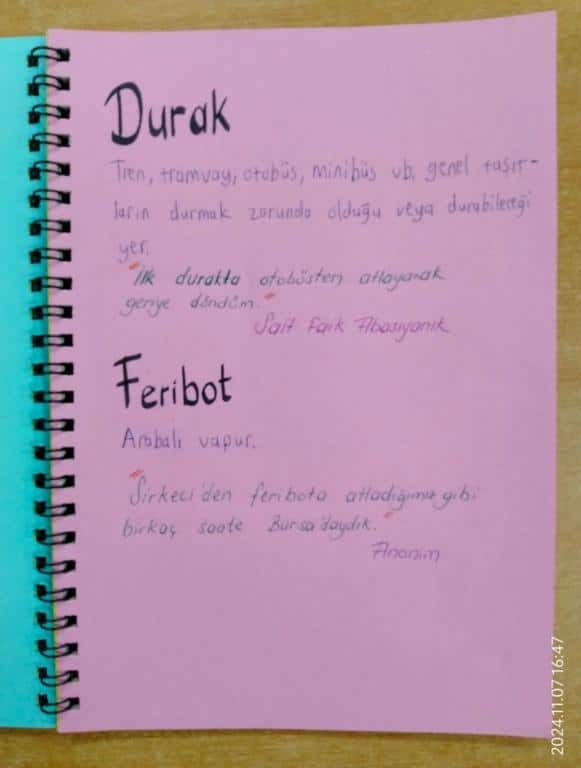 Durak
Tren, tramvay, otobüs, minibüs vb. genel taşıt-
ların durmak zorunda olduğu veya durabileceği
yer.
"İlk durakta otobüsten atlayarak
geriye döndüm."
Sait Faik Abasıyanık
Feribot
Arabalı vapur.
"Sirkeci'den feribota atladığımız gibi
birkaç saate Bursa'daydık."
Anonim
2024.11.07 16:47